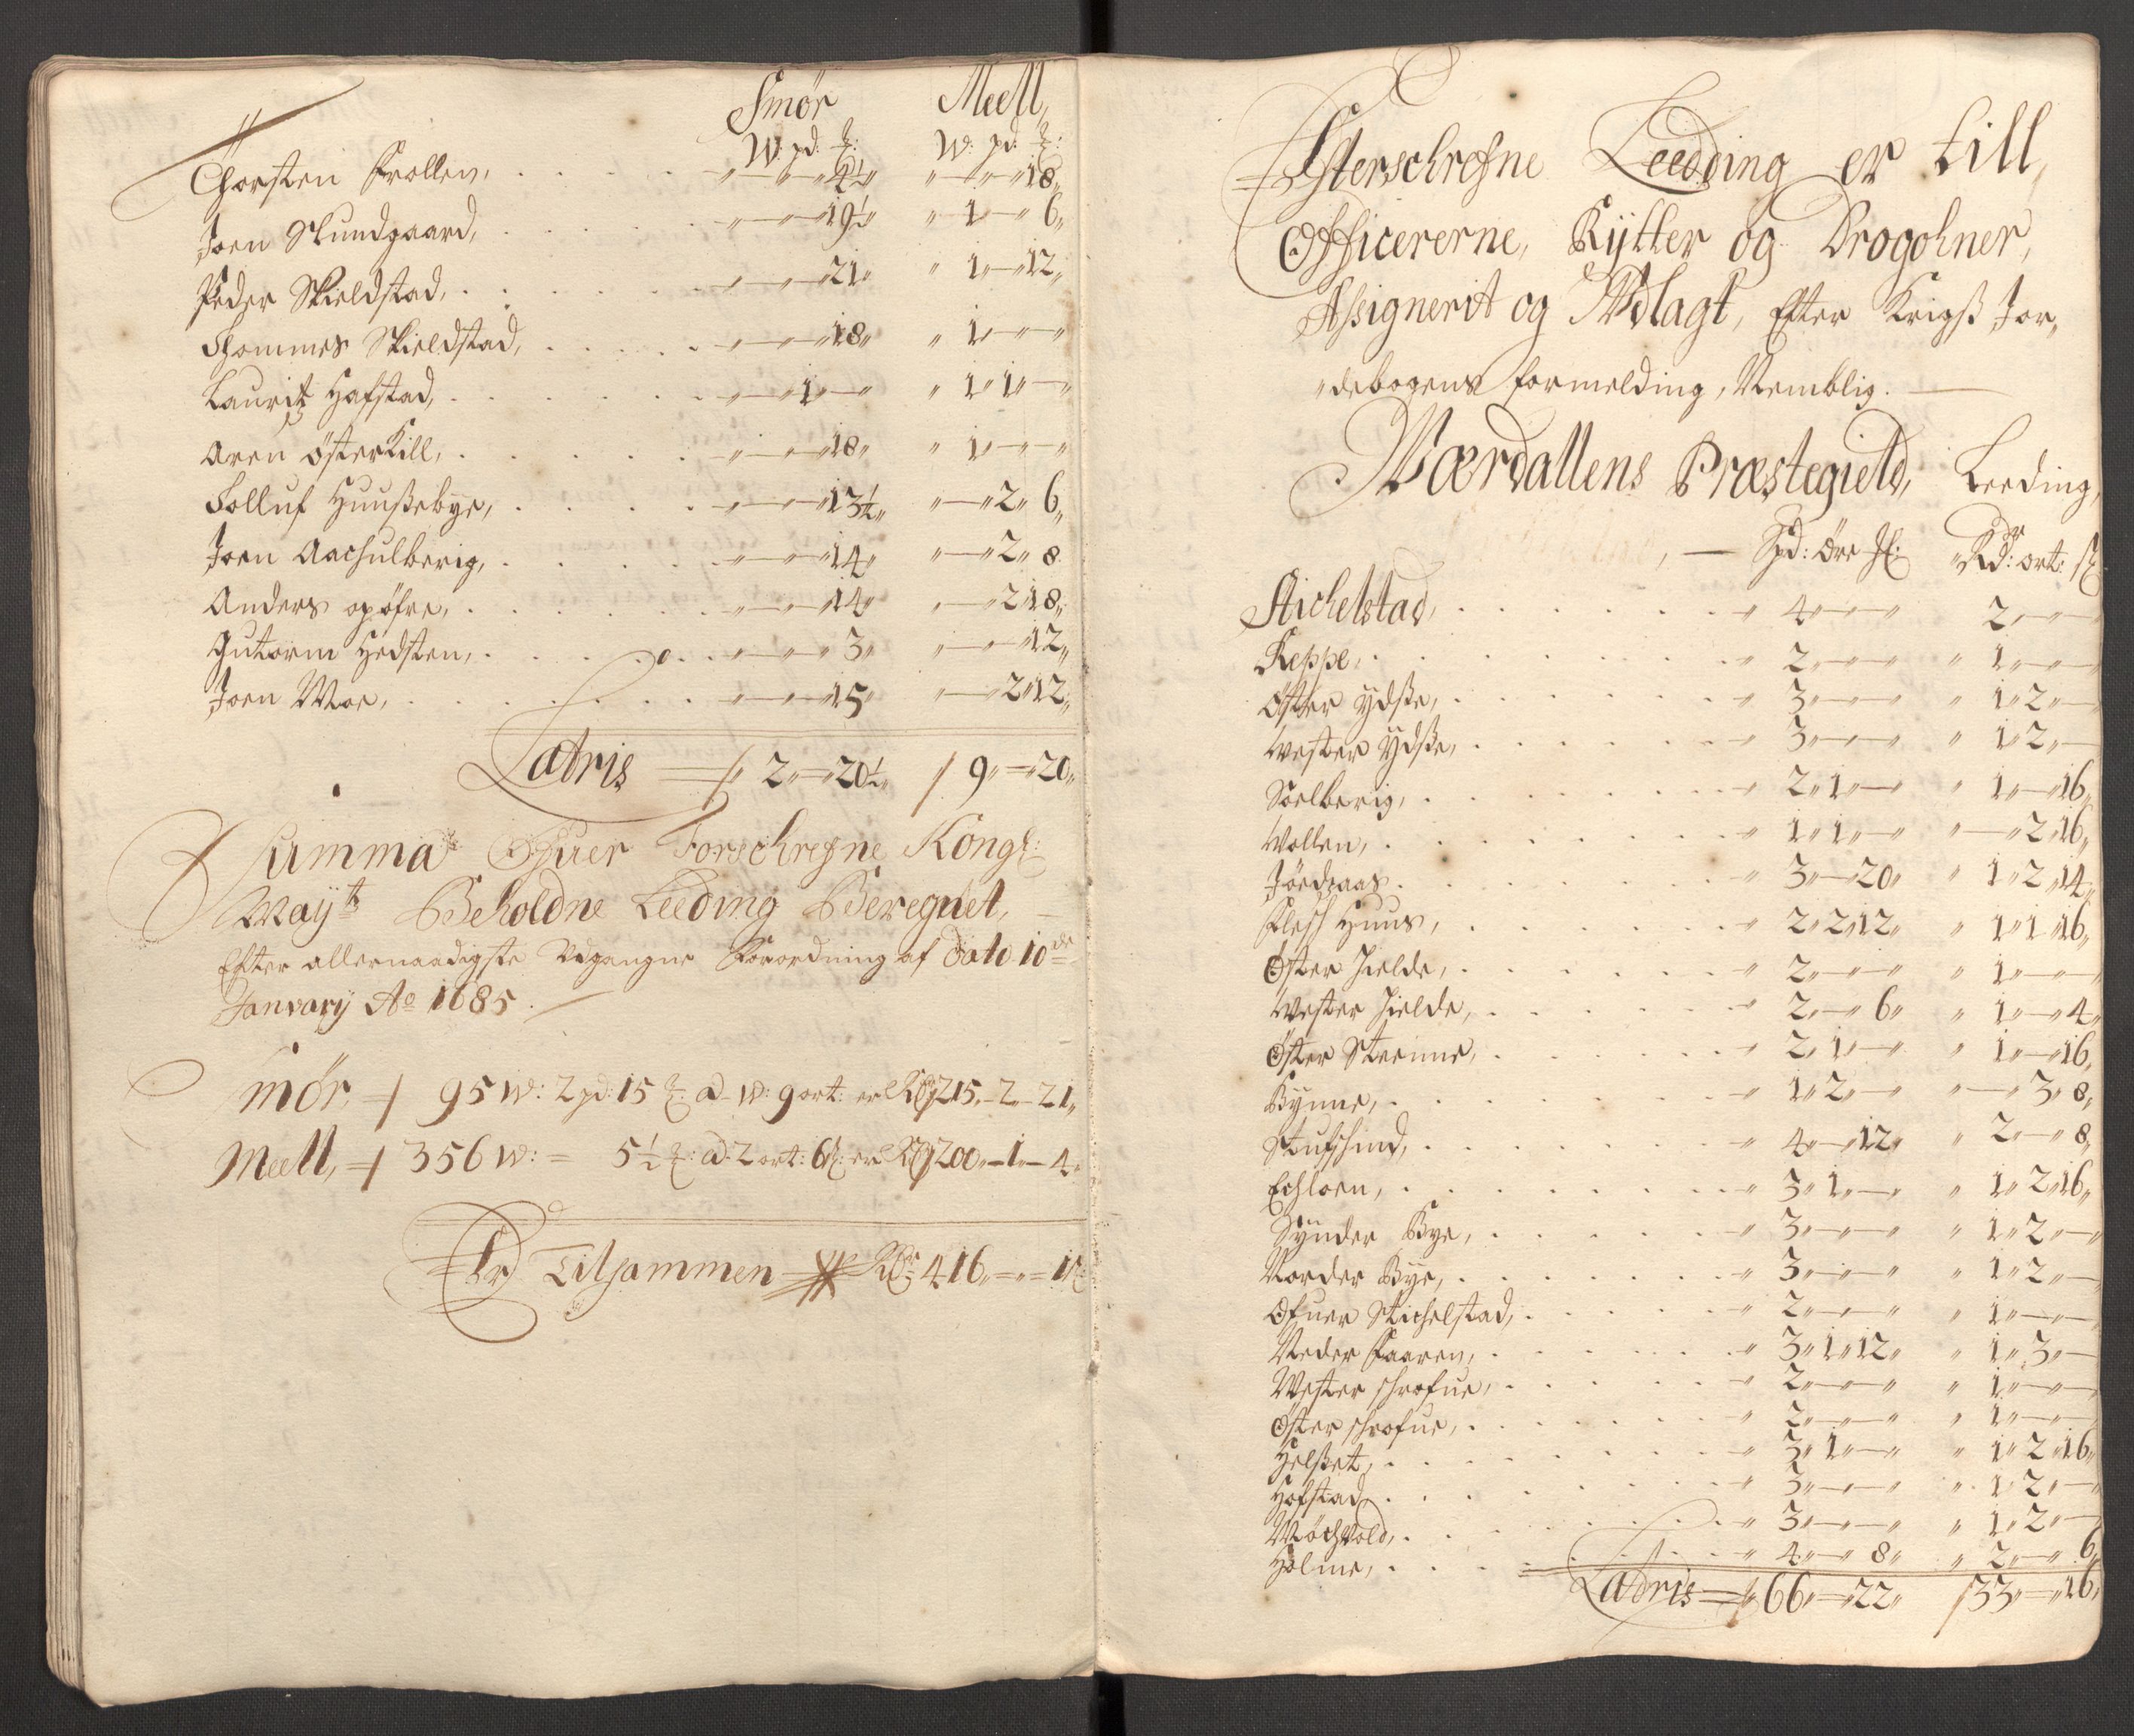 Smör Meell,
W: pd: ℔: W: pd: ℔:
Thorsten Trollen, " — " — 4½" " — " — 18"
Joen Slundgaard, " — " — 19½" " 1 — " 6"
Peder Skieldstad, " — " — 21" " 1 — " 12"
Thommes Skieldstad, " — " — 18" " 1" — " — "
Lauritz Hafstad, " — 1 — " " 1" 1" — "
Aren Österkill, " — " — 18" " 1" — " — "
Tolluf Huußebye, " — " — 13½" " — 2" 6"
Joen Aachulberig, " — " — 14" " — 2" 8
Anders opöfre, " — " — 14" " — 2" 18"
Gutorm Hedsten, " — " — 3" " — " — 12"
Joen Moe, " — " — 15" " — 2" 12"
Latris — 2" — 20½" / 9" = 20"
Summa Ofuer Forschrefne Kongl:
Mayts Beholdne Leeding Beregnet,
Efter allernaadigste Udgangne Forordning af Dato 10de
January Ao 1685.
Smör — 95 W: 2 pd: 15 ℔: ad W: 9 ort: er Rdr 215 – 2 – 21"
Meell, — 356 W: = 5½ ℔: ad 2 ort: 6 ß: er Rdr 200 – 1 – 4"
Er Tilsammen Rdr 416" = " = 1 ß
Efterschrefne Leedding er till,
Officererne, Rytter og Drogohner,
Assignerit og Udlagt, Efter Krigß Jor„
„debogens formelding, Nemblig.
Værdallens Præstegield, Leeding,
Spd: öre ß: Rdr: ort: ß
Stichelstad, " 4" — " — " 2" — " —
Reppe, " 2" — " — " " 1" — " —
Öster Ydße, " 3" — " — " " 1" 2" —
Vester Ydße, " 3" — " — " " 1" 2" —
Soelberig, " 2" 1" — " " 1" — 16"
Vollen, " 1" 1" — " " — 2" 16"
Jördraas " 3" — 20" " 1" 2" 14"
Flesh Huus, " 2" 2" 12" " 1" 1" 16"
Öster Hielde, " 2" — " — " " 1" — " —
Vester Hielde, " 2" — " 6" " 1" — " 4"
Öster Steenne, " 2" 1" — " " 1" — 16"
Bynne, " 1" 2" — " " — " 3" 8"
Stufshind, " 4" — 12" " 2" — " 8"
Echloen, " 3" 1" — " " 1" 2" 16"
Synder Bye, " 3" — " — " " 1" 2" —
Norder Bye, " 3" — " — " " 1" 2" —
Ofuer Stichelstad, " 2" — " — " " 1" — " —
Neder Faaren, " 3" 1" 12" " 1" 3" —
Vester Shrofue, " 2" — " — " " 1" — " —
Öster Shrofue, " 2" — " — " " 1" — " —
Helßet, " 3" 1" — " " 1" 2" 16"
Hofstad " 3" — " — " " 1" 2" —
Möchvold, " 3" — " — " " 1" 2" —
Holme, " 4" — " 8" " 2" — " 6"
Latris — 66" = 22" / 33" = 16"